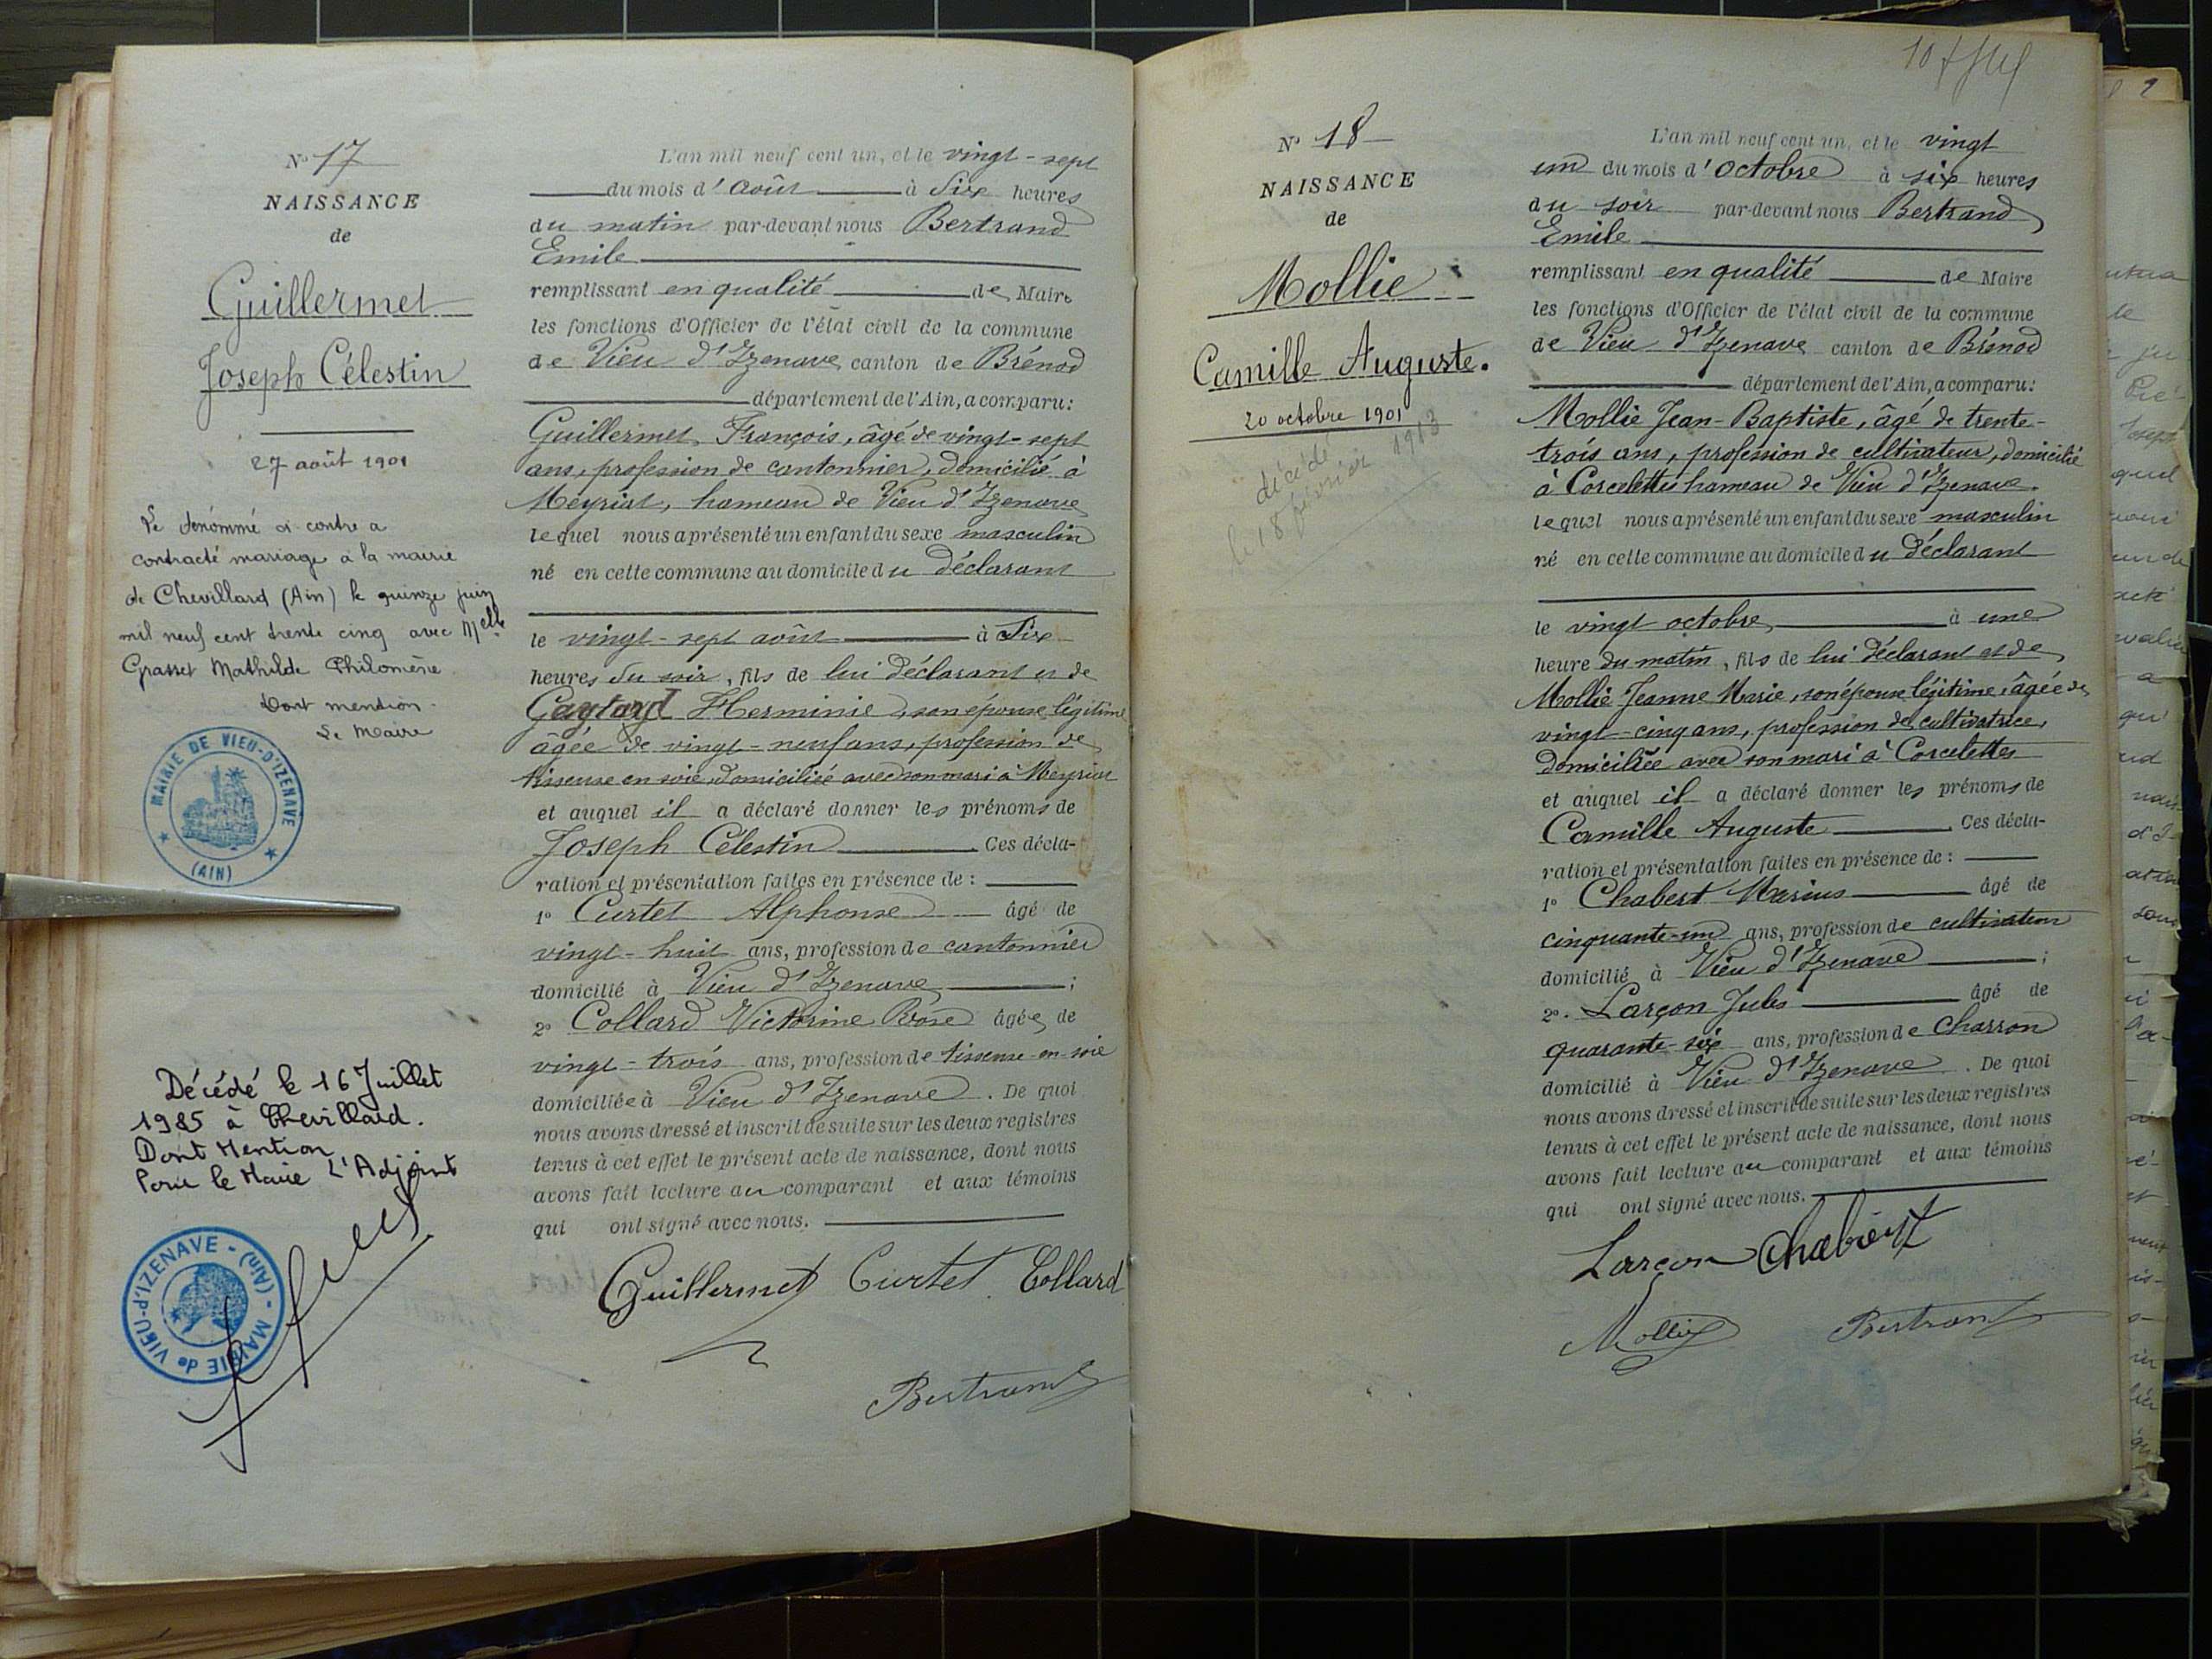 N° 17
NAISSANCE
de
Guillermet
Joseph Célestin
27 août 1901
Le dénommé ci contre a
contracté mariage à la mairie
de Chevillard (Ain) le quinze juin
mil neuf cent trente cinq avec Melle
Grasset Mathilde Philomène.
Dont mention.
Le Maire
MAIRIE DE VIEU-D'IZENAVE
(AIN)
Décédé le 16 Juillet
1985 à Chevillard.
Dont Mention
Pour le Maire L'Adjoint
MAIRIE de VIEU-d'IZENAVE - (Ain) -
L'an mil neuf cent un, et le vingt-sept
du mois d'août à Six heures
du matin par-devant nous Bertrand
Emile
remplissant en qualité de Maire
les fonctions d'Officier de l'état civil de la commune
de Vieu d'Izenave canton de Brénod
département de l'Ain, a comparu:
Guillermet François, âgé de vingt-sept
ans, profession de cantonnier, domicilié à
Meyriat, hameau de Vieu d'Izenave
lequel nous a présenté un enfant du sexe masculin
né en cette commune au domicile du déclarant
le vingt-sept août à Six
heures du soir, fils de lui déclarant et de
Herminie, son épouse légitime
âgée de vingt-neuf ans, profession de
tisseuse en soie, domiciliée avec son mari à Meyriat
et auquel il a déclaré donner les prénoms de
Joseph Célestin Ces décla-
ration et présentation faites en présence de :
1° Curtet Alphonse âgé de
vingt-huit ans, profession de cantonnier
domicilié à Vieu d'Izenave ;
2° Collard Victorine Rose âgée de
vingt-trois ans, profession de tisseuse-en-soie
domiciliée à Vieu d'Izenave. De quoi
nous avons dressé et inscrit de suite sur les deux registres
tenus à cet effet le présent acte de naissance, dont nous
avons fait lecture au comparant et aux témoins
qui ont signé avec nous.
Guillermet Curtet Collard
Bertrand
N° 18
NAISSANCE
de
Mollie
Camille Auguste.
20 octobre 1901
décédé
le 18 février 1913
L'an mil neuf cent un, et le vingt
un du mois d'Octobre à six heures
du soir par-devant nous Bertrand
Emile
remplissant en qualité de Maire
les fonctions d'Officier de l'état civil de la commune
de Vieu d'Izenave canton de Brénod
département de l'Ain, a comparu:
Mollie Jean-Baptiste, âgé de trente-
trois ans, profession de cultivateur, domicilié
à Corcelettes hameau de Vieu d'Izenave.
lequel nous a présenté un enfant du sexe masculin
né en cette commune au domicile du déclarant
le vingt octobre à une
heure du matin, fils de lui déclarant et de
Mollie Jeanne Marie, son épouse légitime, âgée de
vingt-cinq ans, profession de cultivatrice,
domiciliée avec son mari à Corcelettes
et auquel il a déclaré donner les prénoms de
Camille Auguste Ces décla-
ration et présentation faites en présence de :
1° Chabert Marius âgé de
cinquante-un ans, profession de cultivateur
domicilié à Vieu d'Izenave ;
2°. Larçon Jules âgé de
quarante-six ans, profession de charron
domicilié à Vieu d'Izenave. De quoi
nous avons dressé et inscrit de suite sur les deux registres
tenus à cet effet le présent acte de naissance, dont nous
avons fait lecture au comparant et aux témoins
qui ont signé avec nous.
Larçon Chabert
Mollie Bertrand